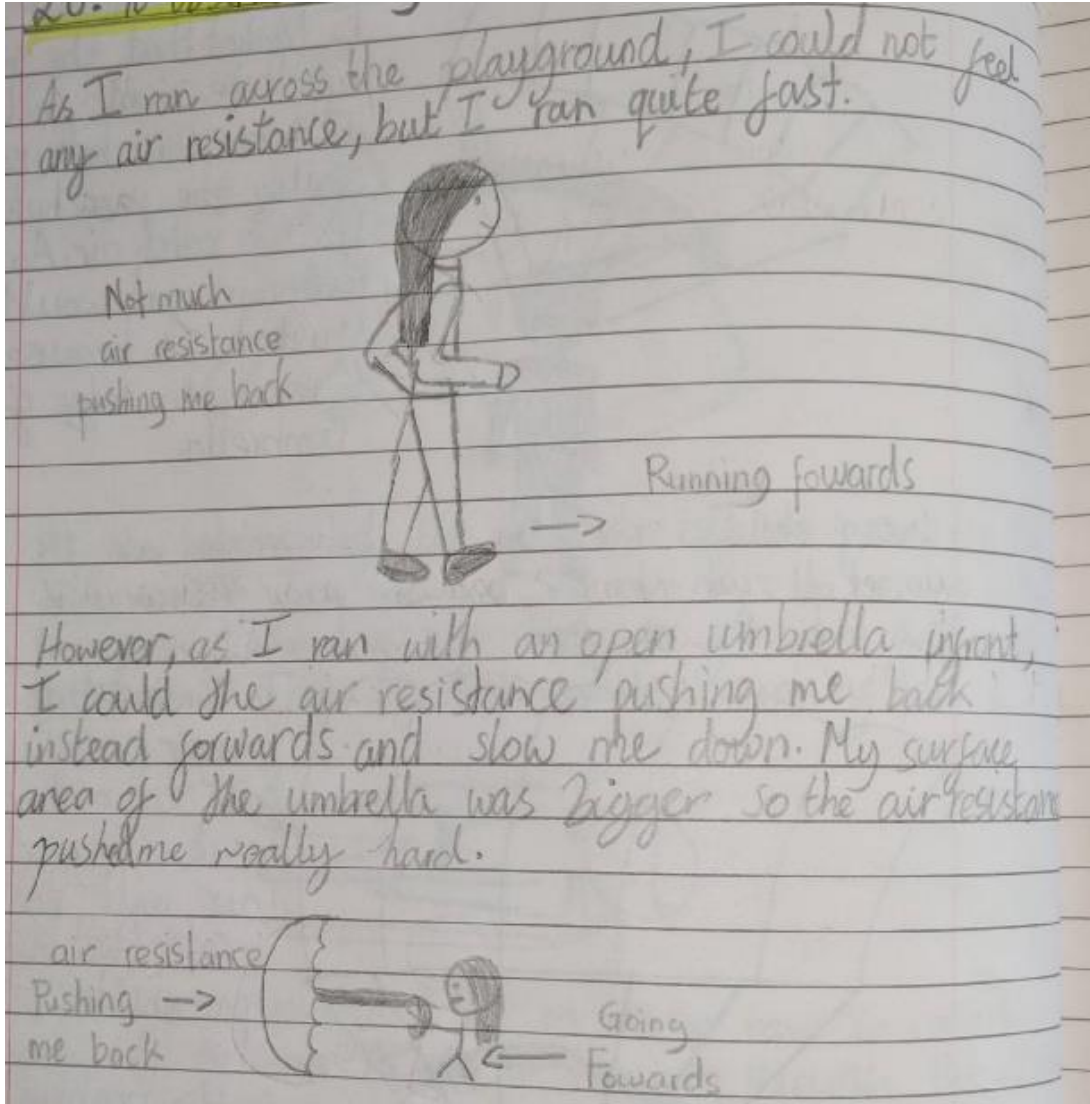 As I ran across the playground, I could not feel
any air resistance, but I ran quite fast.
Not much
air resistance
pushing me back
Running fowards
However, as I ran with an open umbrella infront,
I could the air resistance pushing me back
instead forwards and slow me down. My surface
area of the umbrella was bigger so the air resistanc
pushed me really hard.
air resistance
Pushing
me back
Going
Fowards